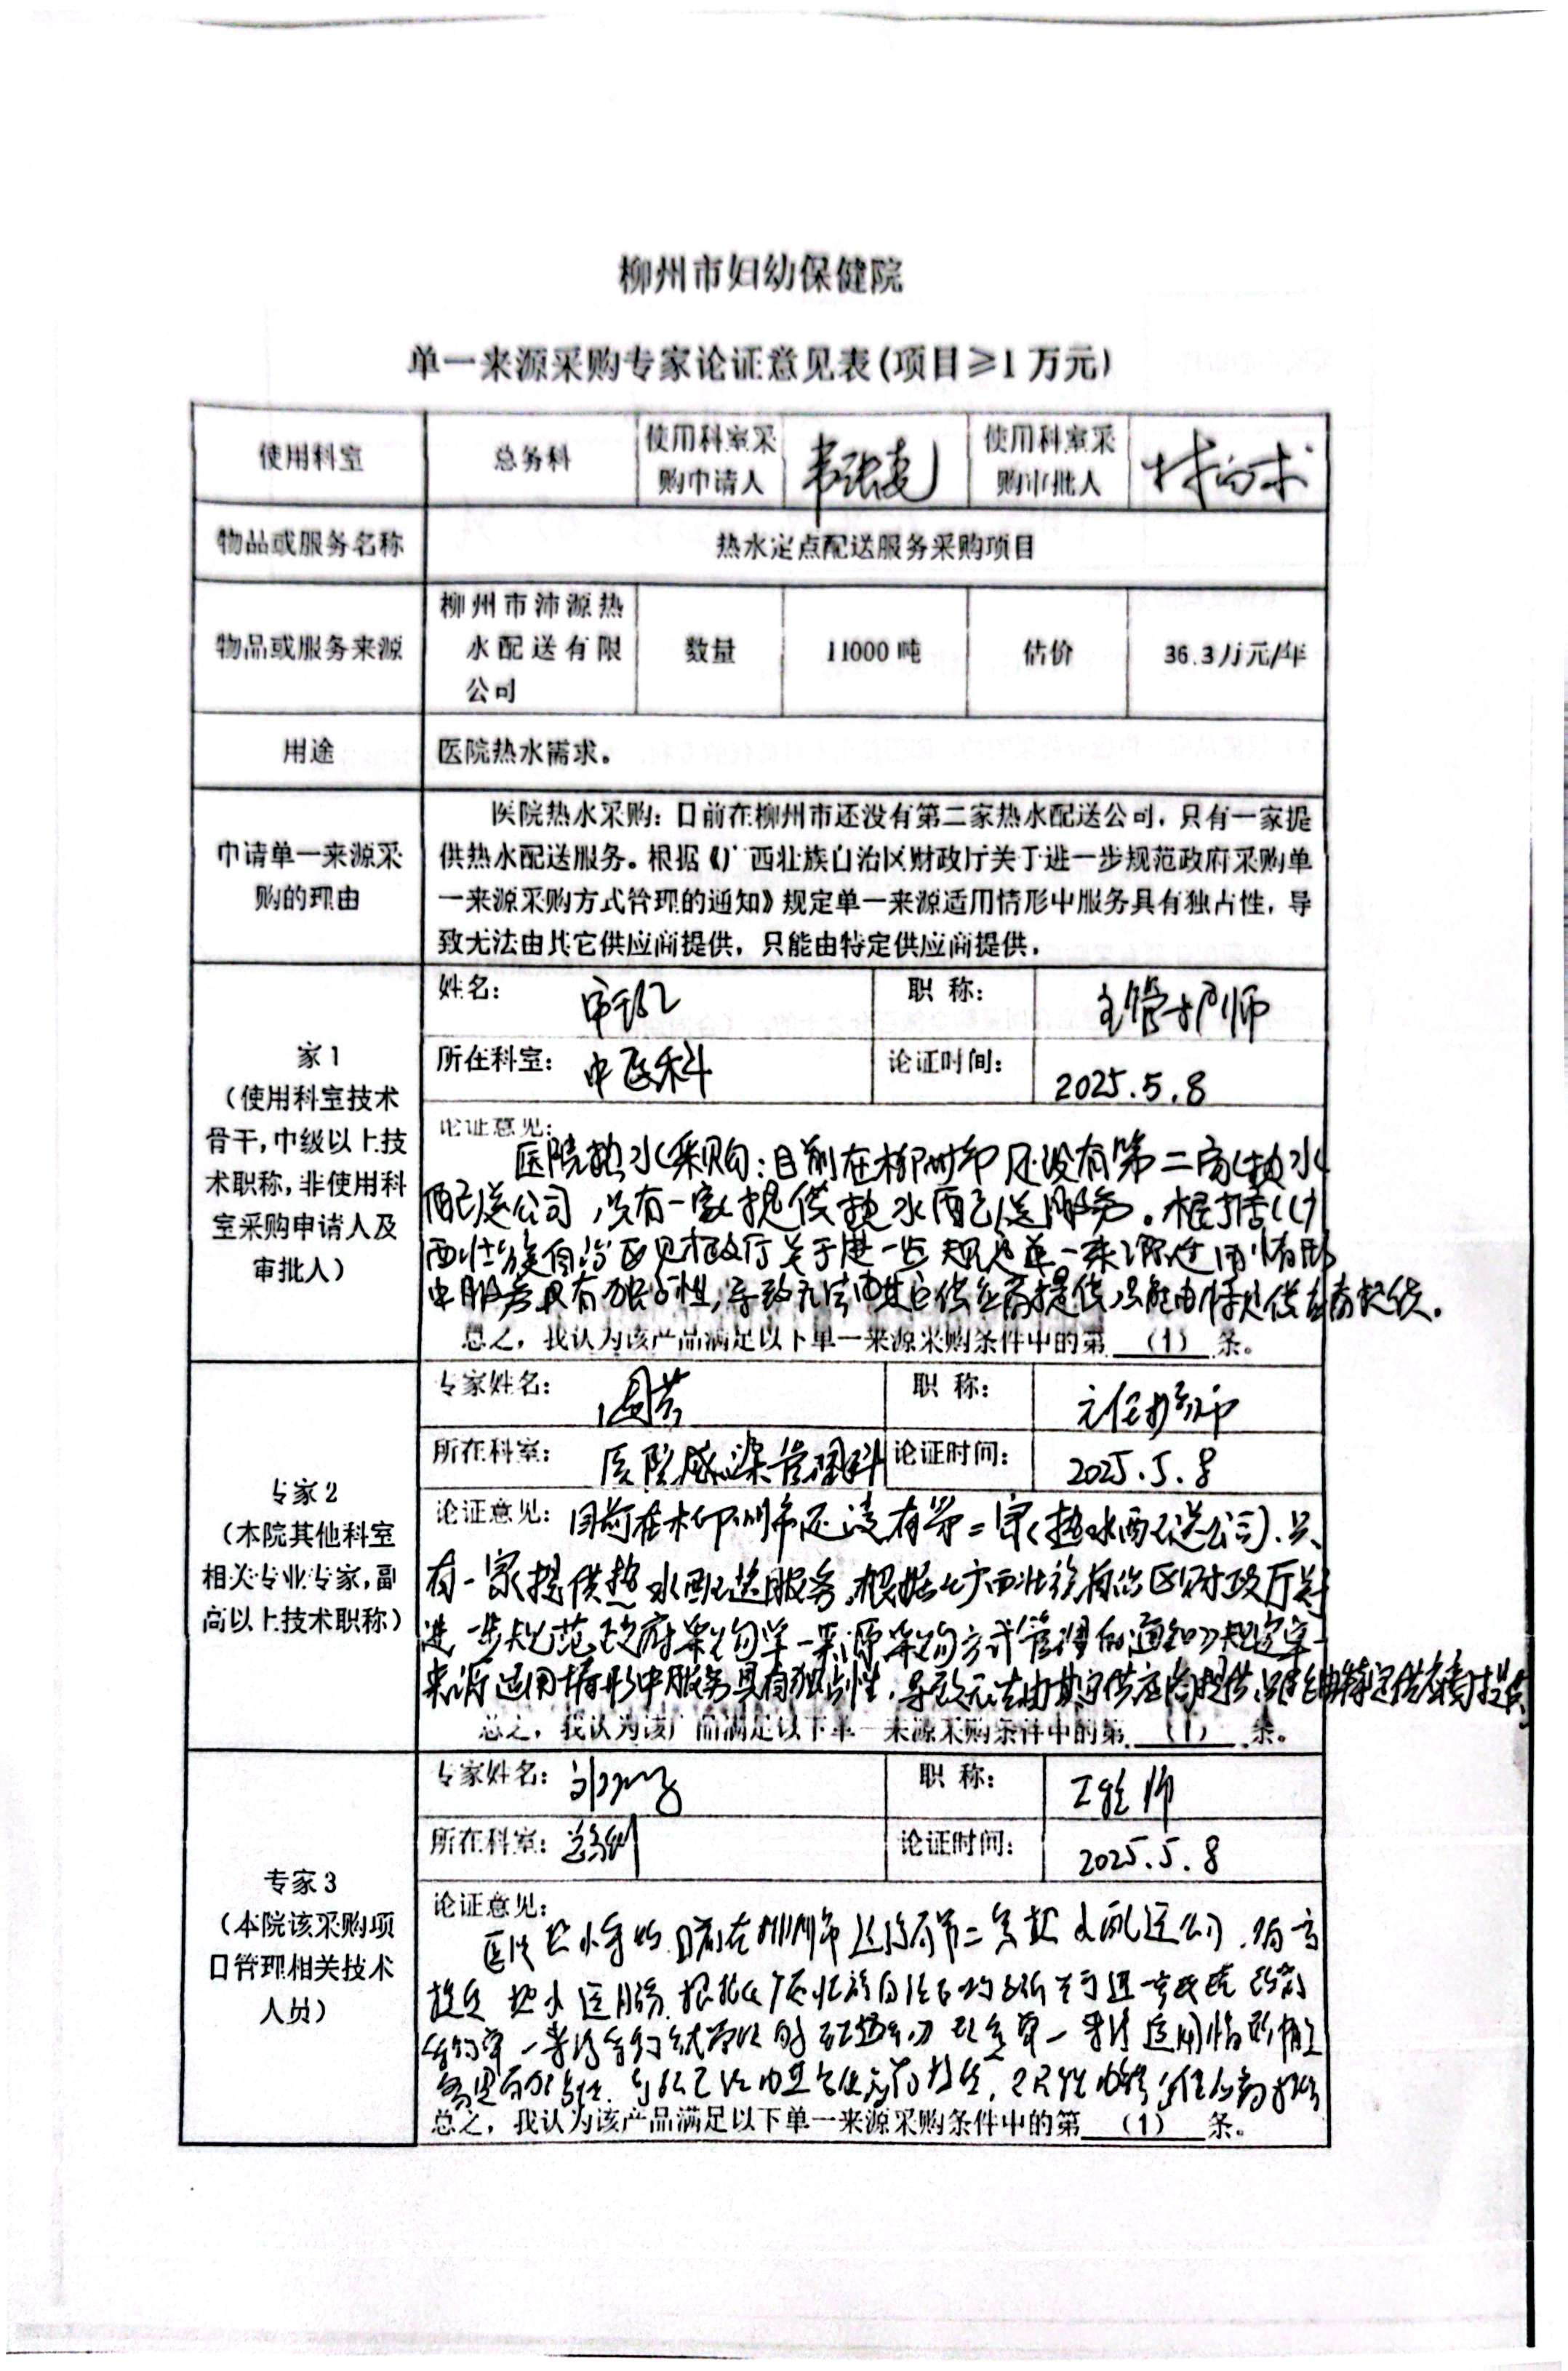 柳州市妇幼保健院
单一来源采购专家论证意见表(项目≥1万元)
使用科室 总务科 使用科室采购申请人 使用科室采购审批人
物品或服务名称 热水定点配送服务采购项目
物品或服务来源 柳州市沛源热水配送有限公司 数量 11000吨 估价 36.3万元/年
用途 医院热水需求。
申请单一来源采购的理由
医院热水采购：目前在柳州市还没有第二家热水配送公司，只有一家提
供热水配送服务。根据《广西壮族自治区财政厅关于进一步规范政府采购单
一来源采购方式管理的通知》规定单一来源适用情形中服务具有独占性，导
致无法由其它供应商提供，只能由特定供应商提供。
家1
（使用科室技术
骨干,中级以上技
术职称,非使用科
室采购申请人及
审批人）
姓名： 职 称： 主管护师
所在科室： 中医科 论证时间： 2025.5.8
论证意见：
医院热水采购：目前在柳州市还没有第二家热水
配送公司，只有一家提供热水配送服务。根据《广
西壮族自治区财政厅关于进一步规定单一来源适用情形
中服务具有独占性，导致无法由其它供应商提供，只能由特定供应商提供。
总之，我认为该产品满足以下单一来源采购条件中的第 （1） 条。
专家2
（本院其他科室
相关专业专家,副
高以上技术职称）
专家姓名： 职 称：
所在科室： 医院感染管理科 论证时间： 2025.5.8
论证意见： 目前在柳州市还没有第二家（热水配送公司）.只
有一家提供热水配送服务。根据《广西壮族自治区财政厅关于
进一步规范政府采购单一来源采购方式管理的通知》规定单一
来源适用情形中服务具有独占性，导致无法由其它供应商提供，只能由特定供应商提供
总之，我认为该产品满足以下单一来源采购条件中的第 （1） 条。
专家3
（本院该采购项
目管理相关技术
人员）
专家姓名： 职 称： 工程师
所在科室： 总务科 论证时间： 2025.5.8
论证意见：
总之，我认为该产品满足以下单一来源采购条件中的第 （1） 条。